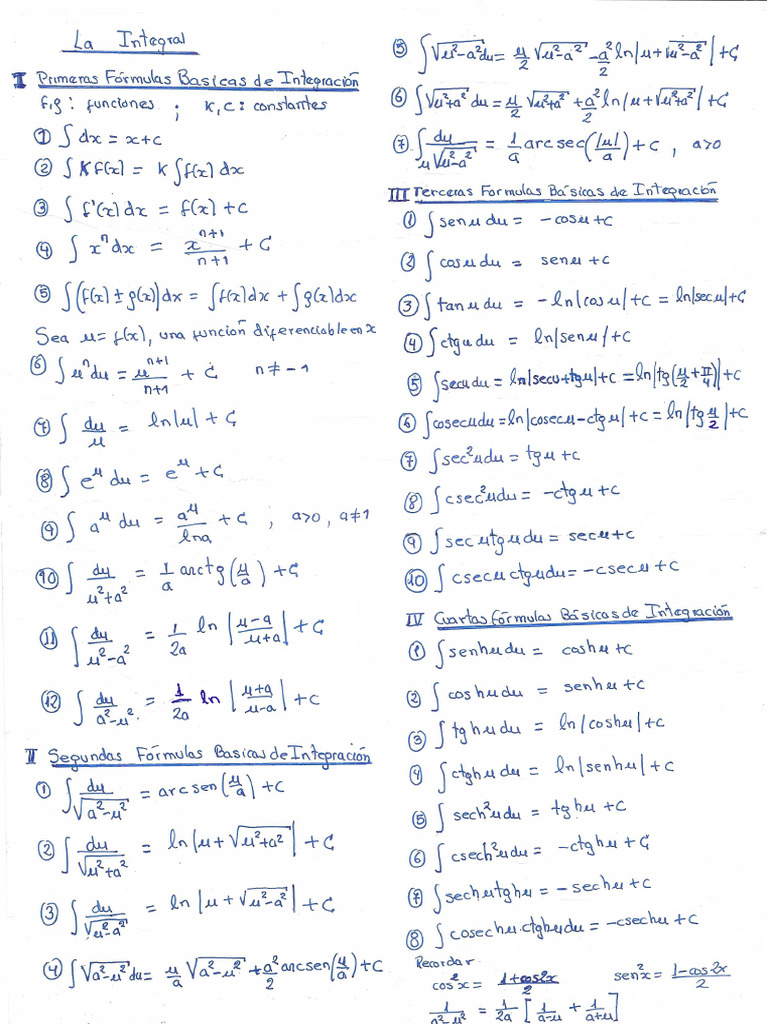 La Integral
I Primeras Fórmulas Basicas de Integración
f,g : funciones ; K, C : constantes
① ∫ dx = x+c
② ∫ K f(x) = K ∫ f(x) dx
③ ∫ f'(x) dx = f(x) + c
④ ∫ xⁿ dx = x^(n+1)/(n+1) + C
⑤ ∫ (f(x) ± g(x)) dx = ∫ f(x) dx + ∫ g(x) dx
Sea u = f(x), una función diferenciable en x
⑥ ∫ uⁿ du = u^(n+1)/(n+1) + C n ≠ -1
⑦ ∫ du/u = ln|u| + C
⑧ ∫ e^u du = e^u + C
⑨ ∫ a^u du = a^u/lna + C , a>0, a≠1
10 ∫ du/(u²+a²) = 1/a arctg(u/a) + C
11 ∫ du/(u²-a²) = 1/2a ln |(u-a)/(u+a)| + C
12 ∫ du/(a²-u²) = 1/2a ln |(u+a)/(u-a)| + C
II Segundas Fórmulas Basicas de Integración
① ∫ du/√(a²-u²) = arcsen(u/a) + C
② ∫ du/√(u²+a²) = ln |u + √(u²+a²)| + C
③ ∫ du/√(u²-a²) = ln |u + √(u²-a²)| + C
④ ∫ √(a²-u²) du = u/a √(a²-u²) + a²/2 arcsen(u/a) + C
⑤ ∫ √(u²-a²) du = u/2 √(u²-a²) - a²/2 ln |u + √(u²-a²)| + C
⑥ ∫ √(u²+a²) du = u/2 √(u²+a²) + a²/2 ln |u + √(u²+a²)| + C
⑦ ∫ du/(u√(u²-a²)) = 1/a arc sec(|u|/a) + C , a>0
III Terceras Formulas Básicas de Integración
① ∫ sen u du = - cos u + C
② ∫ cos u du = sen u + C
③ ∫ tan u du = - ln|cos u| + C = ln|sec u| + C
④ ∫ ctg u du = ln|sen u| + C
⑤ ∫ sec u du = ln|sec u + tg u| + C = ln|tg(u/2 + π/4)| + C
⑥ ∫ cosec u du = ln|cosec u - ctg u| + C = ln|tg u/2| + C
⑦ ∫ sec² u du = tg u + C
⑧ ∫ csec² u du = -ctg u + C
⑨ ∫ sec u tg u du = sec u + C
10 ∫ csec u ctg u du = -csec u + C
IV Cuartas Fórmulas Básicas de Integración
① ∫ senh u du = cosh u + C
② ∫ cosh u du = senh u + C
③ ∫ tgh u du = ln|cosh u| + C
④ ∫ ctgh u du = ln|senh u| + C
⑤ ∫ sech² u du = tgh u + C
⑥ ∫ csech² u du = -ctgh u + C
⑦ ∫ sech u tgh u = - sech u + C
⑧ ∫ cosech u . ctgh u du = -csech u + C
Recordar
cos² x = (1+cos2x)/2 sen² x = (1-cos2x)/2
1/(a²-u²) = 1/2a [1/(a-u) + 1/(a+u)]